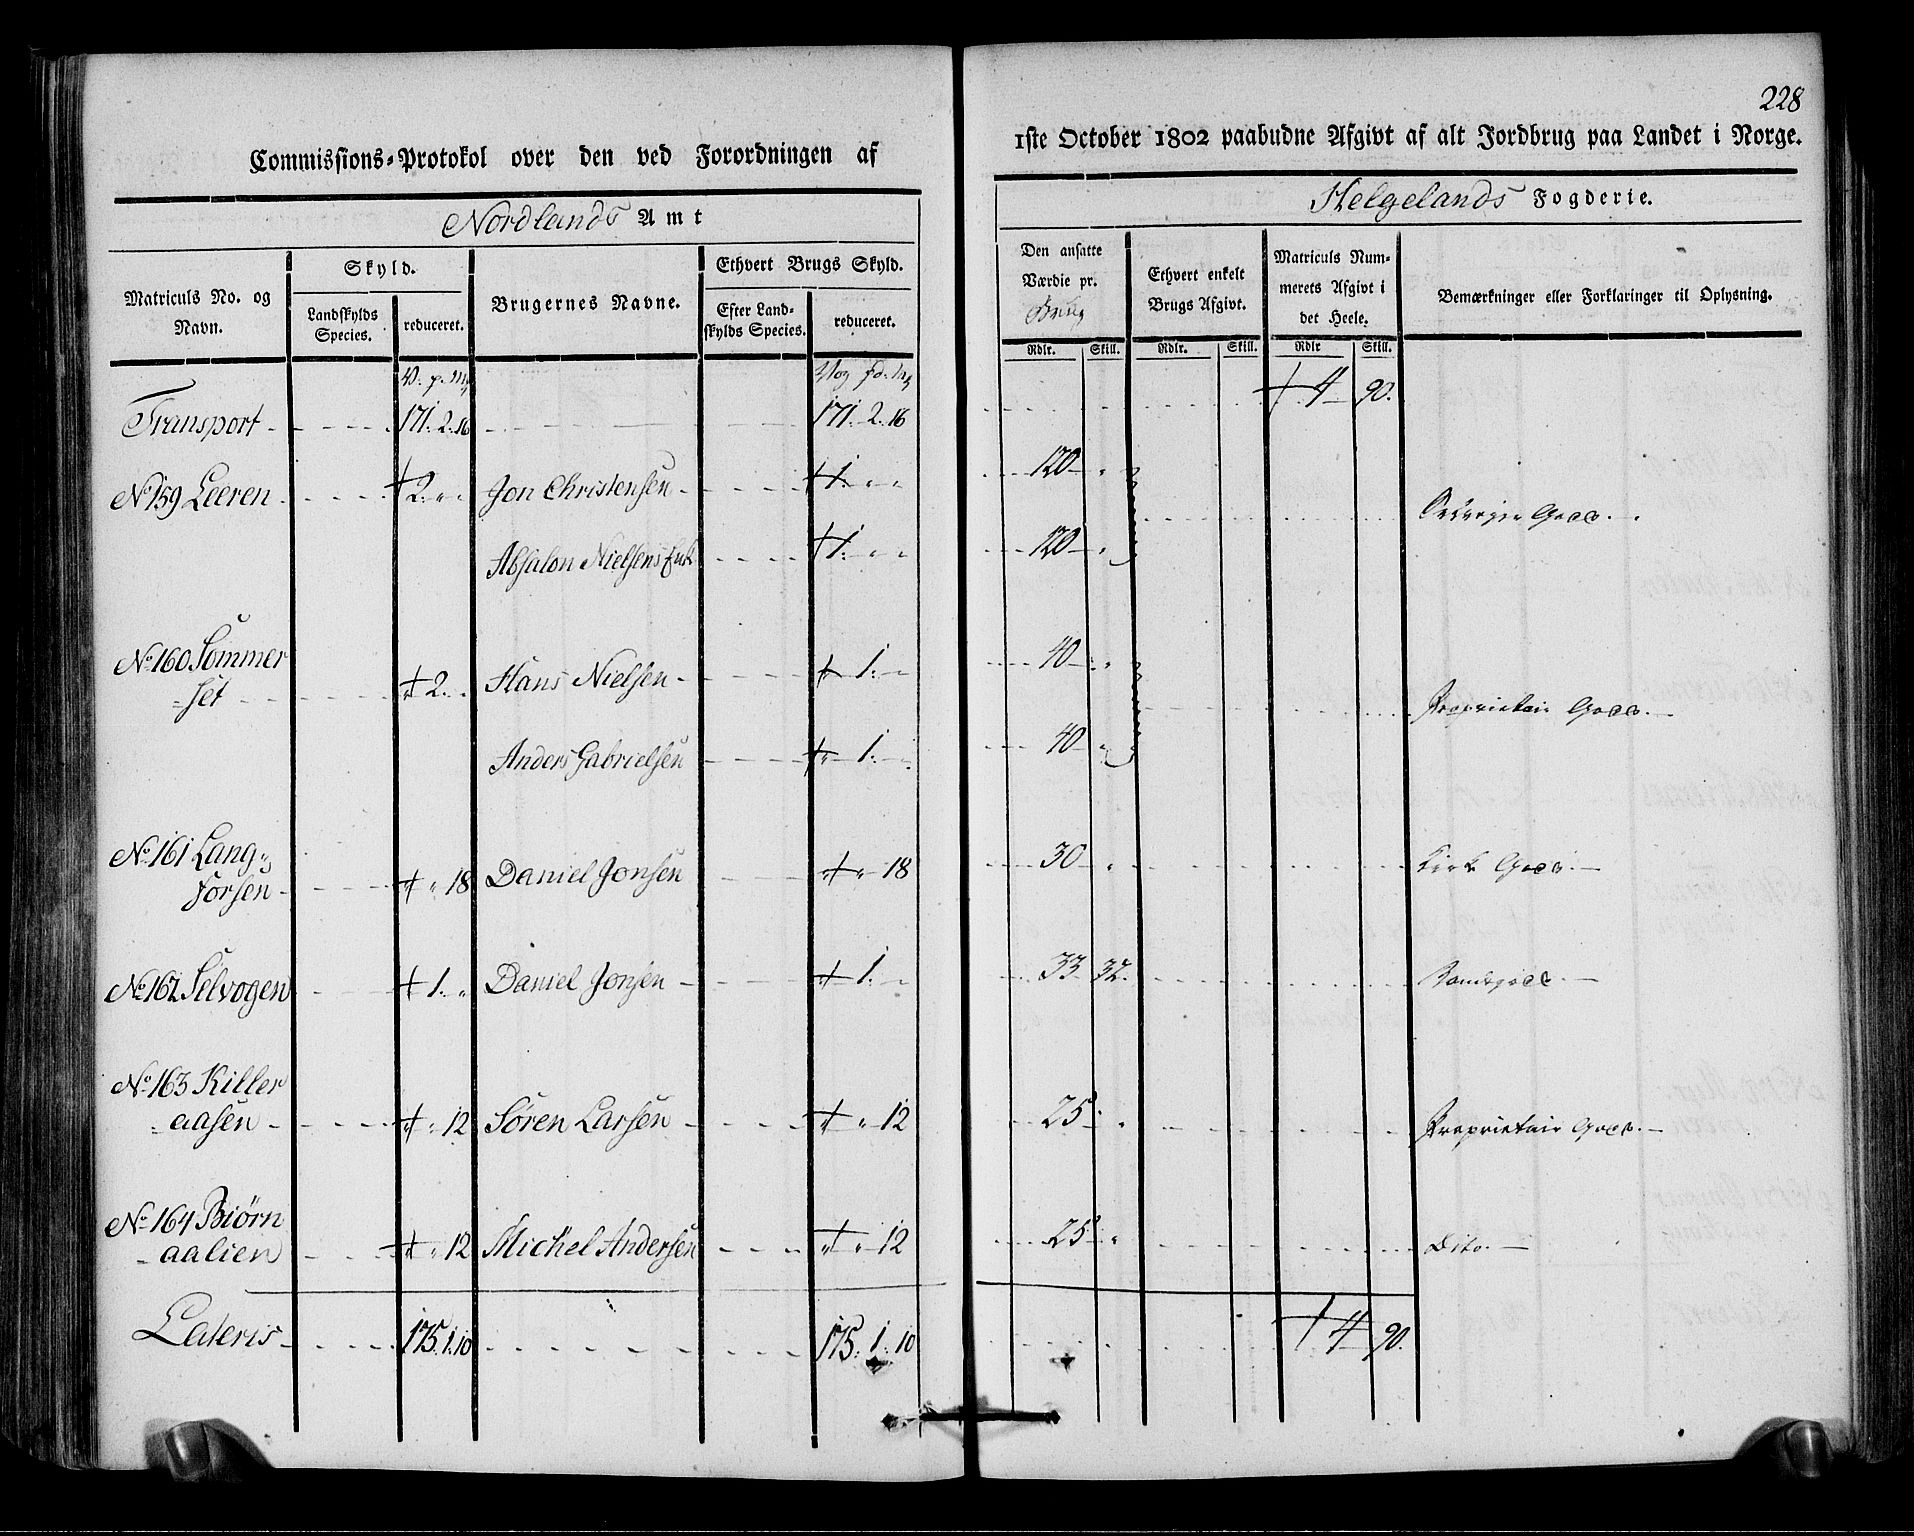 228
Commissions-Protokol over den ved Forordningen af
1ste October 1802 paabudne Afgivt af alt Jordbrug paa Landet i Norge.
Nordlands Amt
Helgelands Fogderie.
Matriculs No. og Navn.
Skyld.
Landskylds Species.
reduceret.
Brugernes Navne.
Ethvert Brugs Skyld.
Efter Landskylds Species.
reduceret.
Den ansatte Værdie pr. Brug
Ethvert enkelt Brugs Afgivt.
Matriculs Nummerets Afgivt i det Heele.
Bemærkninger eller Forklaringer til Oplysning.
Rdlr. Skill. Rdlr. Skill. Rdlr Skill.
V. p. Mk Vog pd. Mk
Transport 171. 2. 16 171. 2. 16 4 90.
No 159 Leeren 2. " " Jon Christensen 1. " " 120 "
Goes.
Absalon Nielsens Enke 1. " " 120 "
No 160 Sommer
=set " 2. " Hans Nielsen " 1. " 40 " Proprietair Goes.
Anders Gabrielsen " 1. " 40 "
No 161 Lang=
forsen " " 18 Daniel Jonsen " " 18 30 " Kirke Goes.
No 162 Selvogen 1. " Daniel Jonsen " 1. " 33 32.
No 163 Killer
=aasen " " 12 Søren Larsen " " 12 25 " Proprietair Goes.
No 164 Biørn
=aalien " " 12 Michel Andersen " " 12 25 " Dito.
Lateris 175. 1. 10 175. 1. 10 4 90.